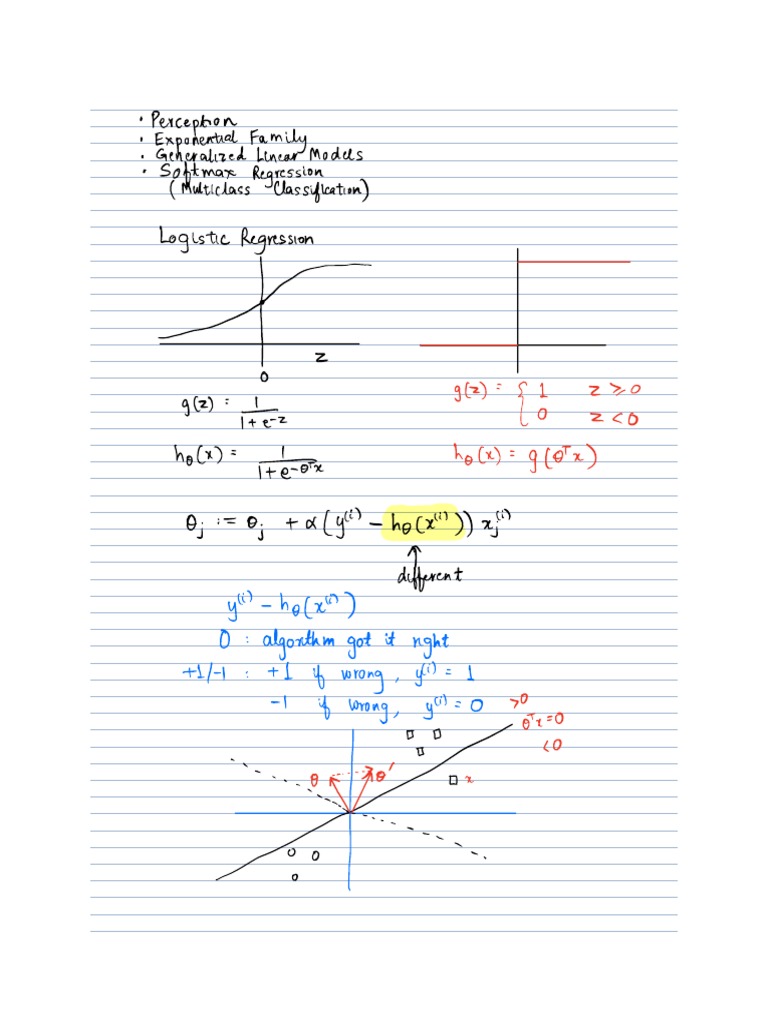 • Perception
• Exponential Family
• Generalized Linear Models
• Softmax Regression
(Multiclass Classification)
Logistic Regression
z
0
g(z) = 1 / (1 + e^{-z})
g(z) = { 1 z ≥ 0
0 z < 0
h_θ(x) = 1 / (1 + e^{-θ^T x})
h_θ(x) = g(θ^T x)
θ_j := θ_j + α(y^{(i)} - h_θ(x^{(i)})) x_j^{(i)}
different
y^{(i)} - h_θ(x^{(i)})
0 : algorithm got it right
+1/-1 : +1 if wrong, y^{(i)} = 1
-1 if wrong, y^{(i)} = 0
>0
θ^T x = 0
<0
θ θ' x